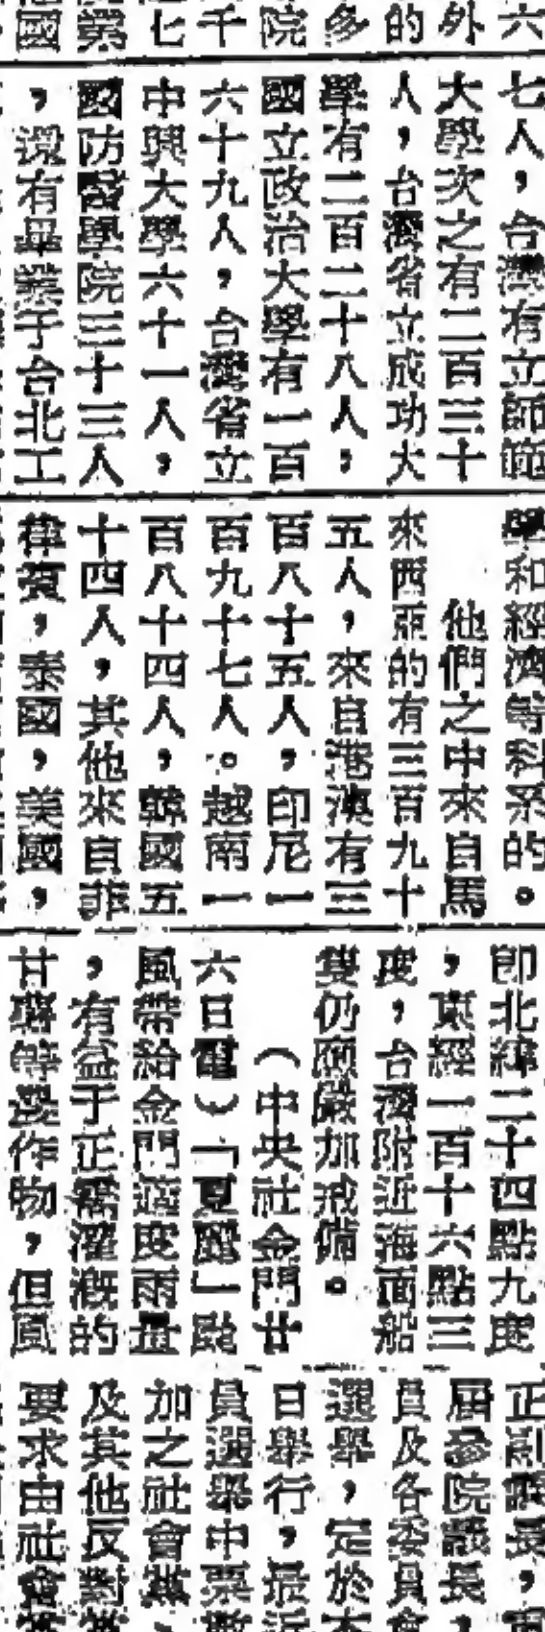 六
外
的
多
院
千
七
第
國
七人，台灣有立師範
大學次之有二百三十
人，台灣省立成功大
學有二百二十八人，
國立政治大學有一百
六十九人，台灣省立
中興大學六十一人，
國防醫學院三十三人
，還有畢業于台北工
學和經濟等科系的。
他們之中來自馬
來西亞的有三百九十
五人，來自港澳有三
百八十五人，印尼一
百九十七人。越南一
百八十四人，韓國五
十四人，其他來自菲
律賓，泰國，美國，
即北緯二十四點九度
，東經一百十六點三
度，台灣附近海面船
隻仍應嚴加戒備。
（中央社金門廿
六日電）「夏露」颱
風帶給金門適度雨量
，有益于正需灌溉的
甘藷等農作物，但風
正副議長，
屆參院議長，
員及各委員會
選舉，定於本
日舉行，最近
員選舉中票數
加之社會黨、
及其他反對黨
要求由社會黨